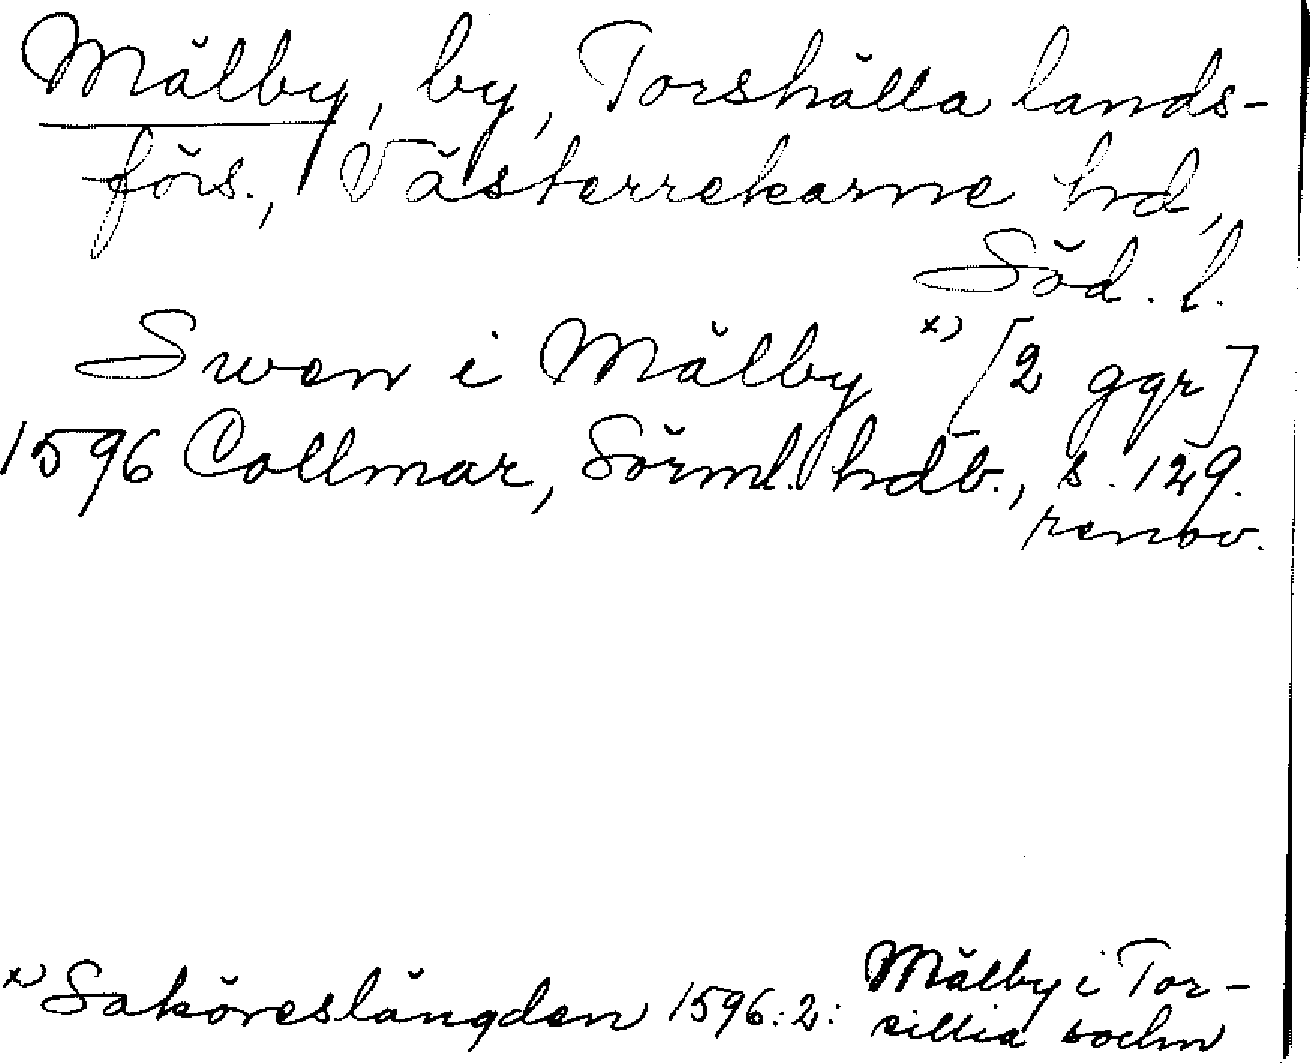 Mälby, by, Torshälla lands-
förs., Västerrekarne hd,
Söd. l.
Swen i Mälby x) [2 ggr]
1596 Collmar, Sörml. hdb., s. 129.
renov.
x) Saköreslängden 1596:2: Mälby i Tor-
sillia sochn